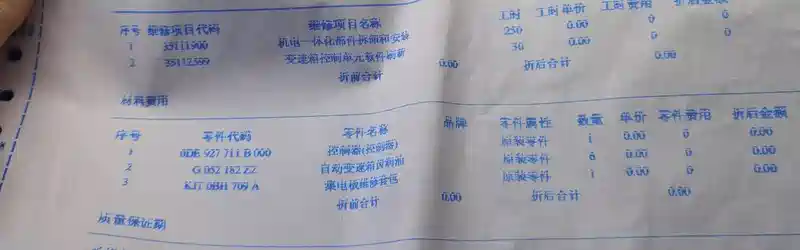 序号 维修项目代码 维修项目名称 工时 工时单价 工时费用 折后金额
1 35111900 机电一体化部件拆卸和安装 250 0.00 0 0
2 35112599 变速箱控制单元软件刷新 30 0.00 0 0
折前合计 0.00 折后合计 0.00
材料费用
序号 零件代码 零件名称 品牌 零件属性 数量 单价 零件费用 折后金额
1 0DE 927 711 B 000 控制器(控制器) 原装零件 1 0.00 0 0.00
2 G 052 182 Z2 自动变速箱齿轮油 原装零件 6 0.00 0 0.00
3 KIT 0BH 709 A 原装零件 1 0.00 0 0.00
折前合计 0.00 折后合计 0.00
质量保证期